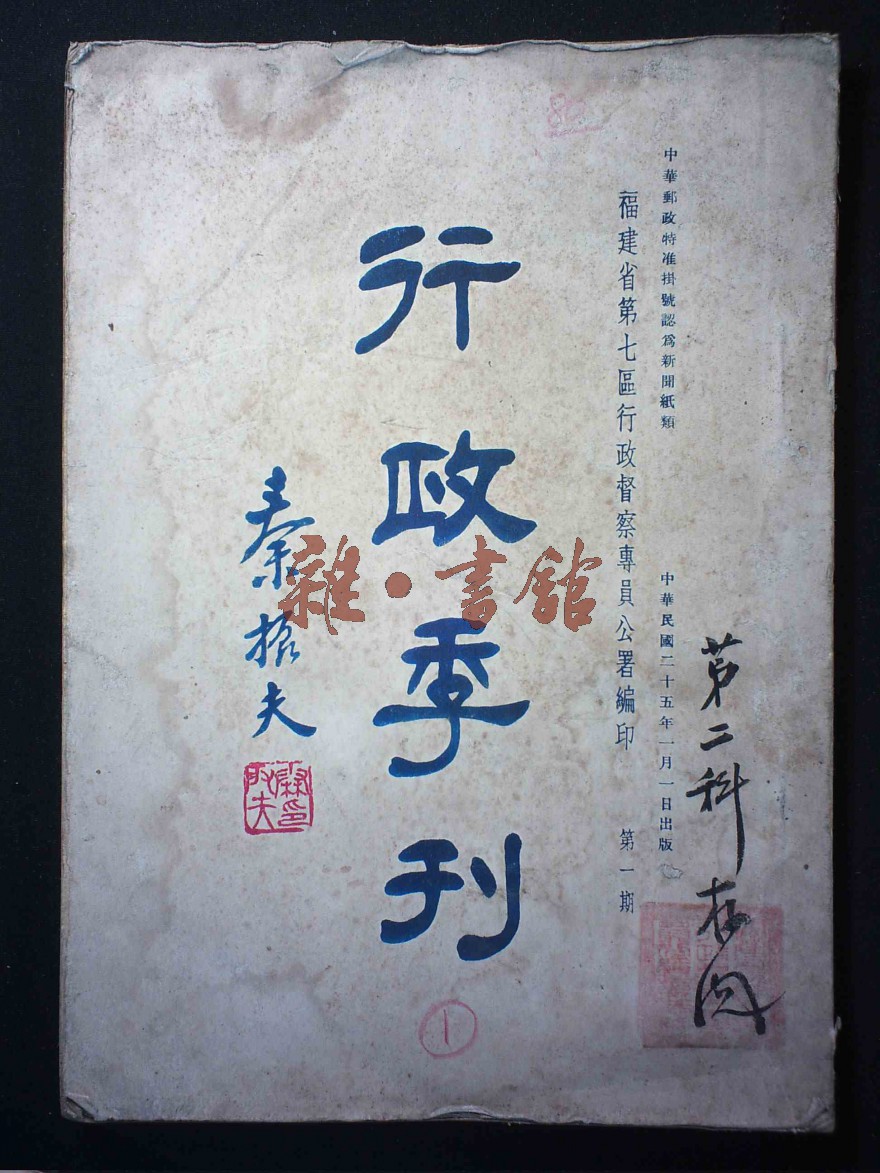 中華郵政特准掛號認爲新聞紙類
中華民國二十五年一月一日出版
福建省第七區行政督察專員公署編印
第一期
行政季刊
秦振夫
第二科存閱
雜·書館
1